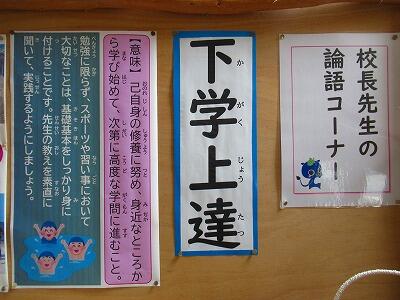 校長先生の
論語コーナー
下学上達
かがくじょうたつ
【意味】己自身の修養に努め、身近なところか
ら学び始めて、次第に高度な学問に進むこと。
勉強に限らず、スポーツや習い事において
大切なことは、基礎基本をしっかり身に
付けることです。先生の教えを素直に
聞いて、実践するようにしましょう。